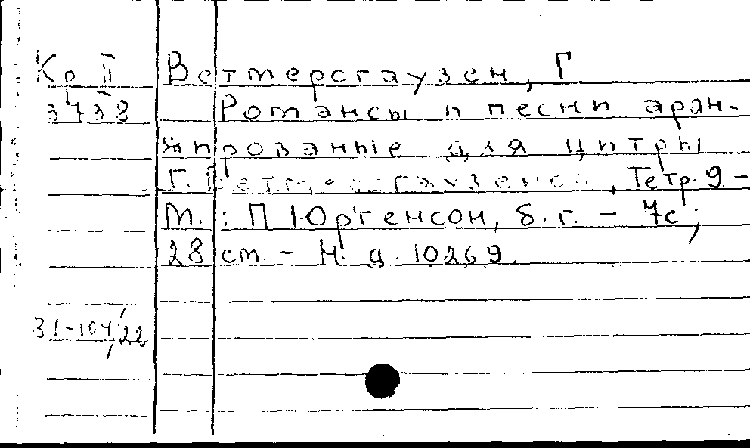 Кр II
3738
Ветмерсгаузен, Г
Романсы и песни аран-
жированные для цитры
Г. Ветмерсгаузена, Тетр. 9 –
М.: П Юргенсон, б. г. – 7с;
28 cm. – Н. д. 10269.
31-104/22